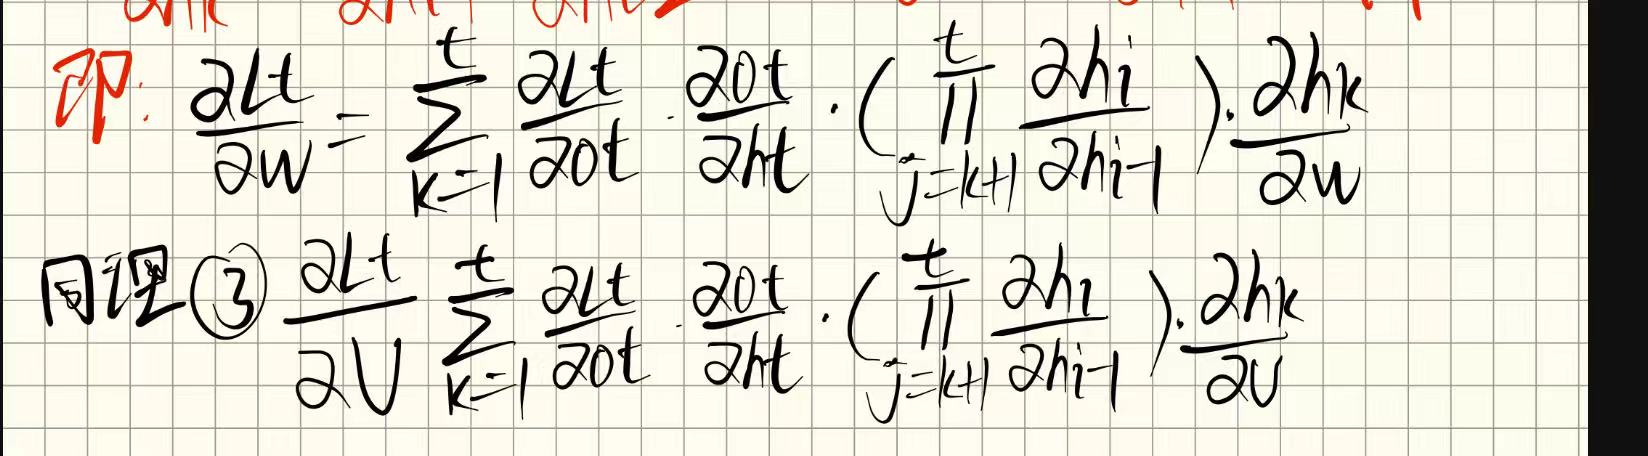 即: ∂Lt/∂W = ∑_{k=1}^{t} ∂Lt/∂Ot · ∂Ot/∂ht · (∏_{j=k+1}^{t} ∂hi/∂hi-1) · ∂hk/∂W
同理③ ∂Lt/∂U ∑_{k=1}^{t} ∂Lt/∂Ot · ∂Ot/∂ht · (∏_{j=k+1}^{t} ∂hi/∂hi-1) · ∂hk/∂U